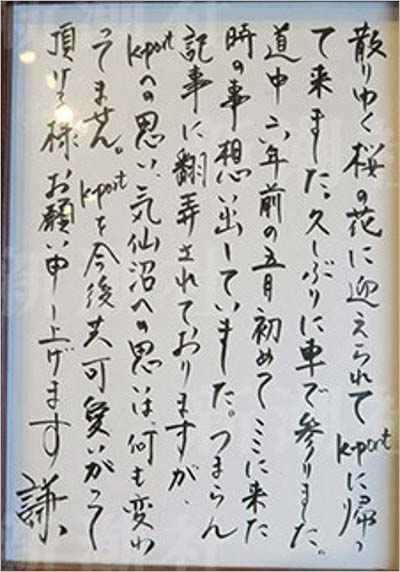 散りゆく桜の花に迎えられてK-portに帰っ
て来ました。久しぶりに車で参りました。
道中六年前の五月初めてここに来た
時の事想い出していました。つまらん
記事に翻弄されておりますが、
K-portへの思い、気仙沼への思いは、何も変わ
ってません。K-portを今後共可愛いがって
頂ける様お願い申し上げます 謙、